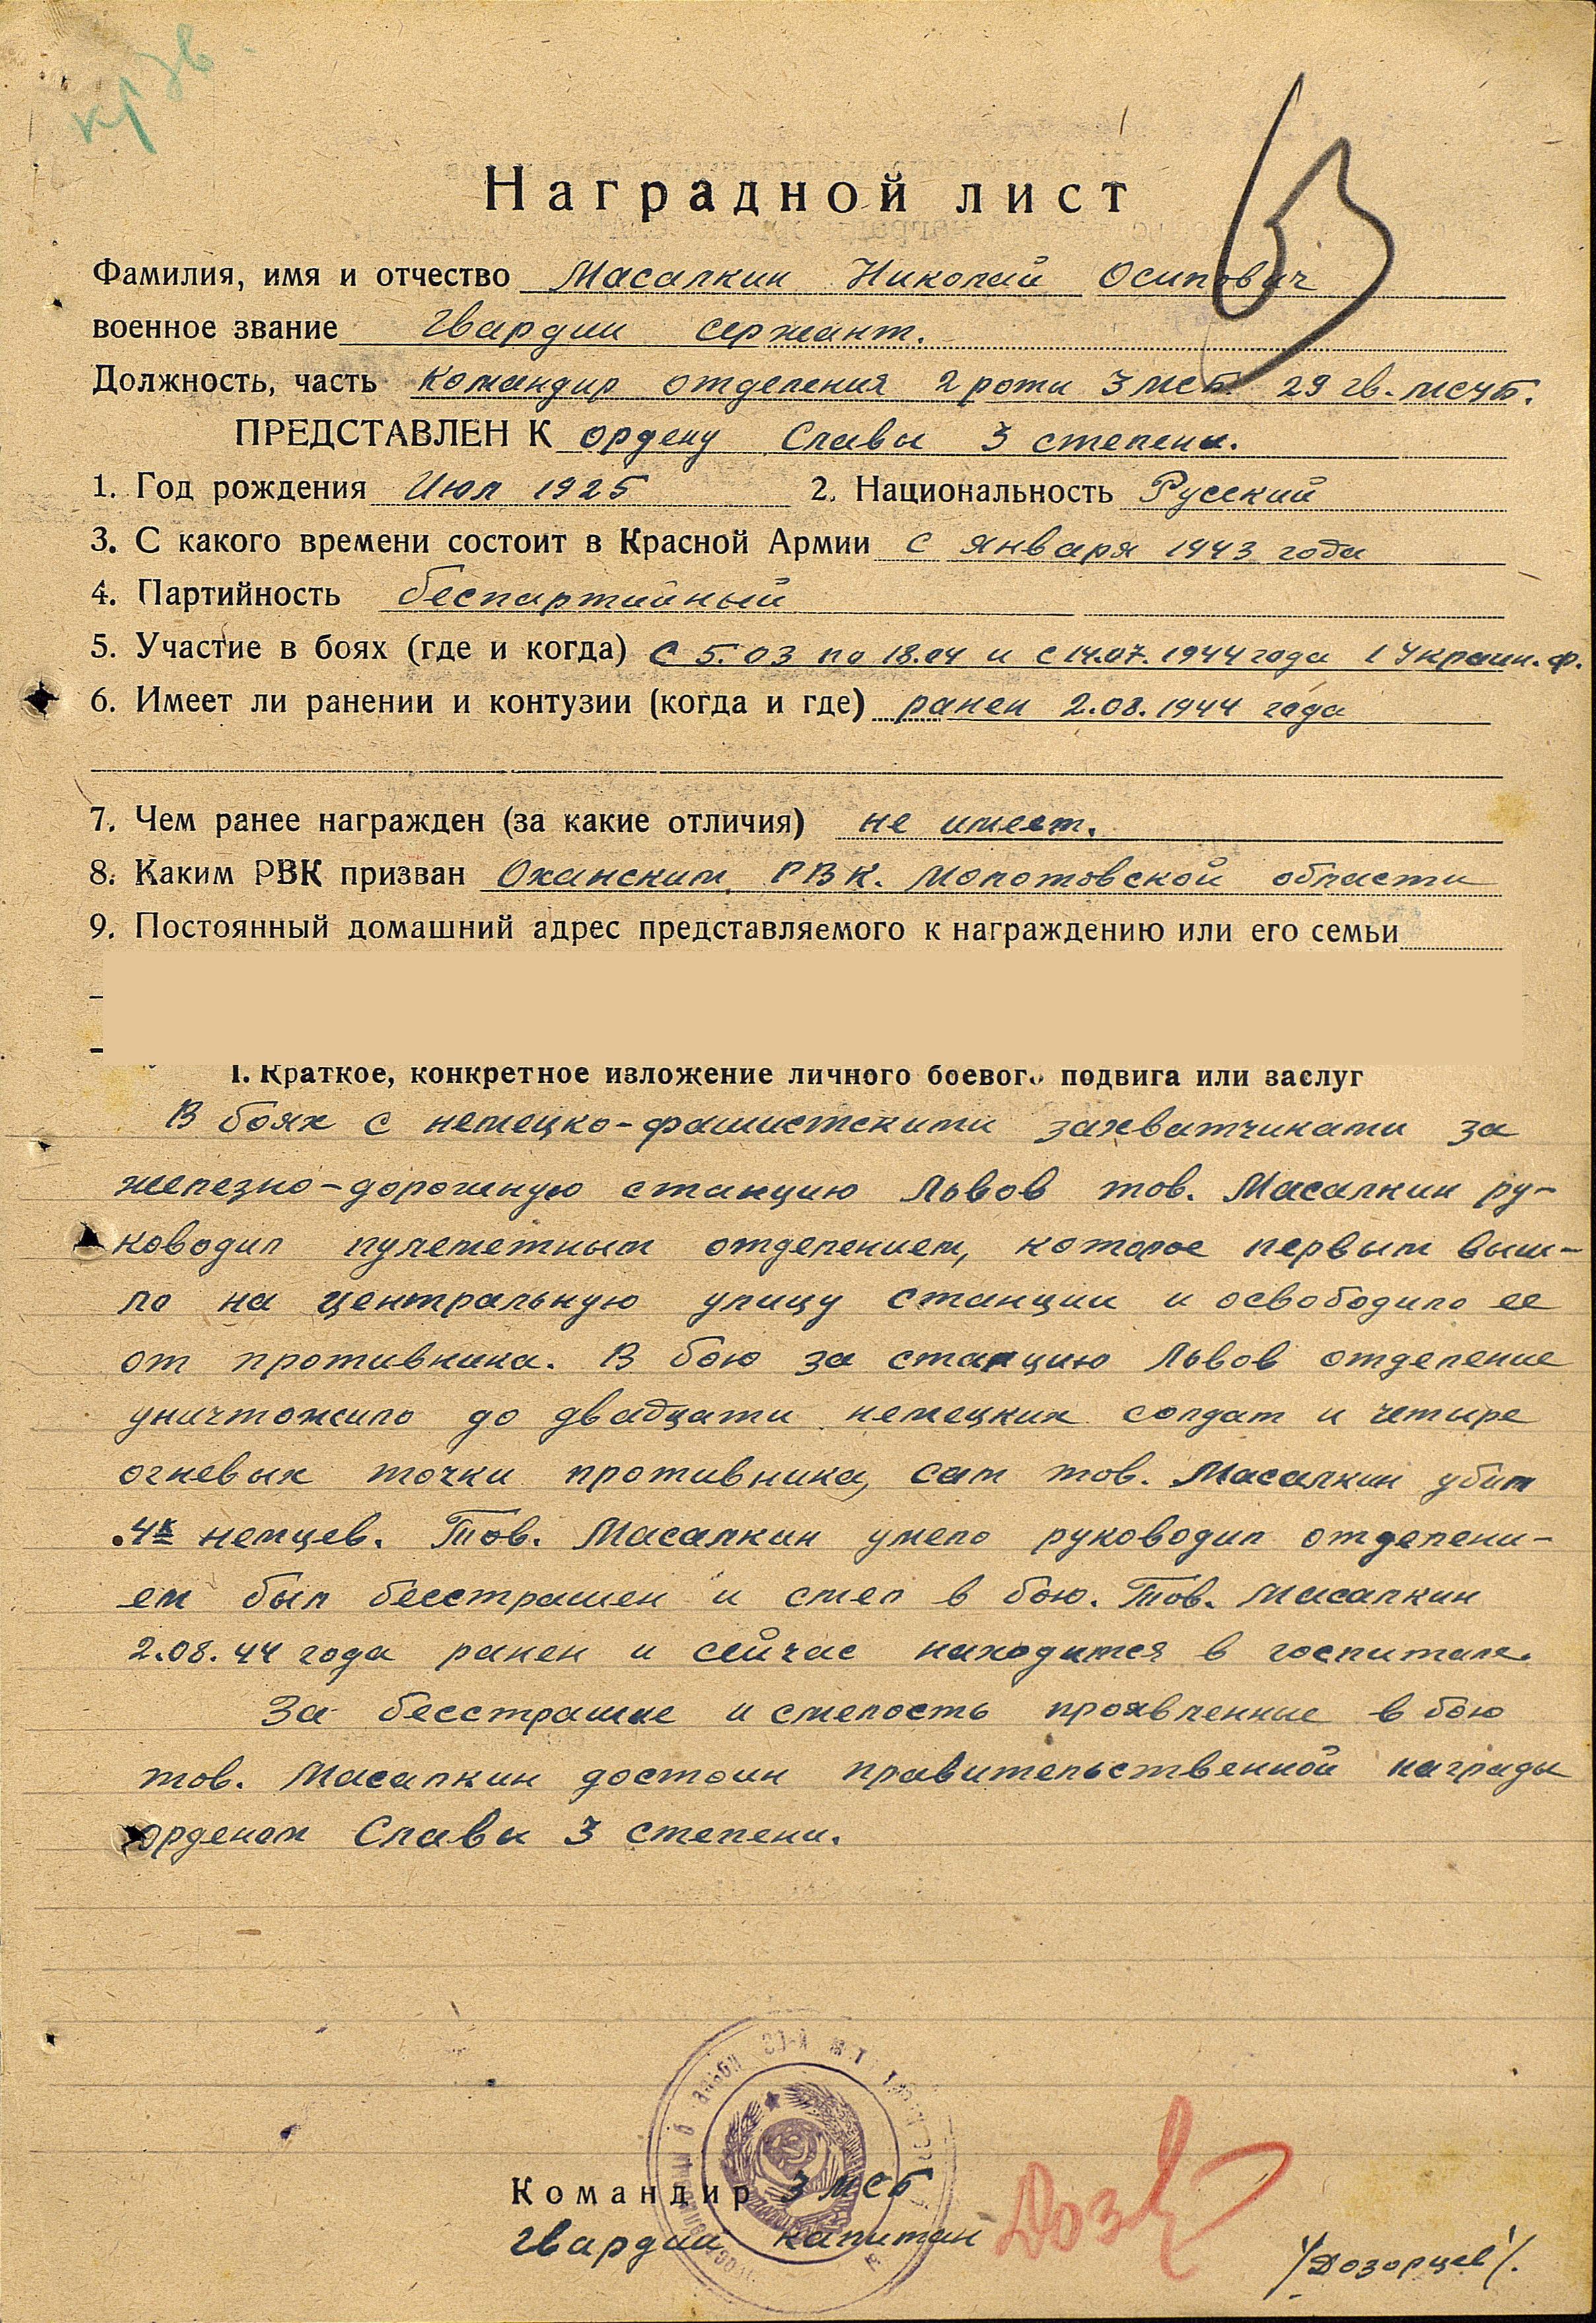 кр зв.
Наградной лист
Фамилия, имя и отчество Масалкин Николай Осипович
военное звание гвардии сержант.
Должность, часть командир отделения 2 роты 3 мсб 29 гв. мсчб.
ПРЕДСТАВЛЕН К ордену Славы 3 степени.
1. Год рождения Июл 1925 2. Национальность Русский
3. С какого времени состоит в Красной Армии с января 1943 года
4. Партийность беспартийный
5. Участие в боях (где и когда) с 5.03 по 18.04 и с 14.07.1944 года 1 Украин. ф.
6. Имеет ли ранении и контузии (когда и где) ранен 2.08.1944 года
7. Чем ранее награжден (за какие отличия) не имеет.
8. Каким РВК призван Оханским РВК. Молотовской области
9. Постоянный домашний адрес представляемого к награждению или его семьи
I. Краткое, конкретное изложение личного боевого подвига или заслуг
В боях с немецко-фашистскими захватчиками за
железно-дорожную станцию Львов тов. Масалкин ру-
ководил пулеметным отделением, которое первым выш-
ло на центральную улицу станции и освободило ее
от противника. В бою за станцию Львов отделение
уничтожило до двадцати немецких солдат и четыре
огневых точки противника, сам тов. Масалкин убил
4х немцев. Тов. Масалкин умело руководил отделени-
ем был бесстрашен и смел в бою. Тов. Масалкин
2.08.44 года ранен и сейчас находится в госпитале.
За бесстрашие и смелость проявленные в бою
тов. Масалкин достоин правительственной награды
орденом Славы 3 степени.
Командир 3 мсб
гвардии капитан
/Дозорцев/.